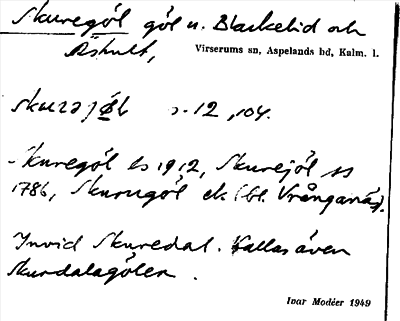 Skuregöl göl u. Blackelid och
Åshult,
Virserums sn, Aspelands hd, Kalm. l.
skurəjøl s. 12, 104.
Skuregöl Es 1912, Skurejöl
1786, Skurugöl ek (bl. Vrånganäs).
Invid Skuredal. Kallas även
Skurdalagölen.
Ivar Modéer 1949